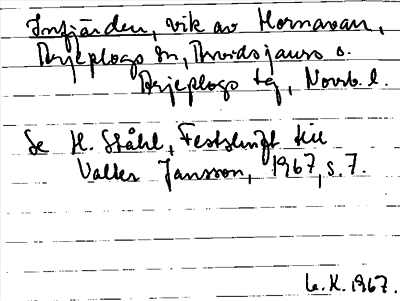 Innfjärden, vik av Hornavan,
Arjeplogs sn, Arvidsjaurs o.
Arjeplogs tg, Norrb. l.
Se H. Ståhl, Festskrift till
Valter Jansson, 1967, s. 7.
K. 1967.